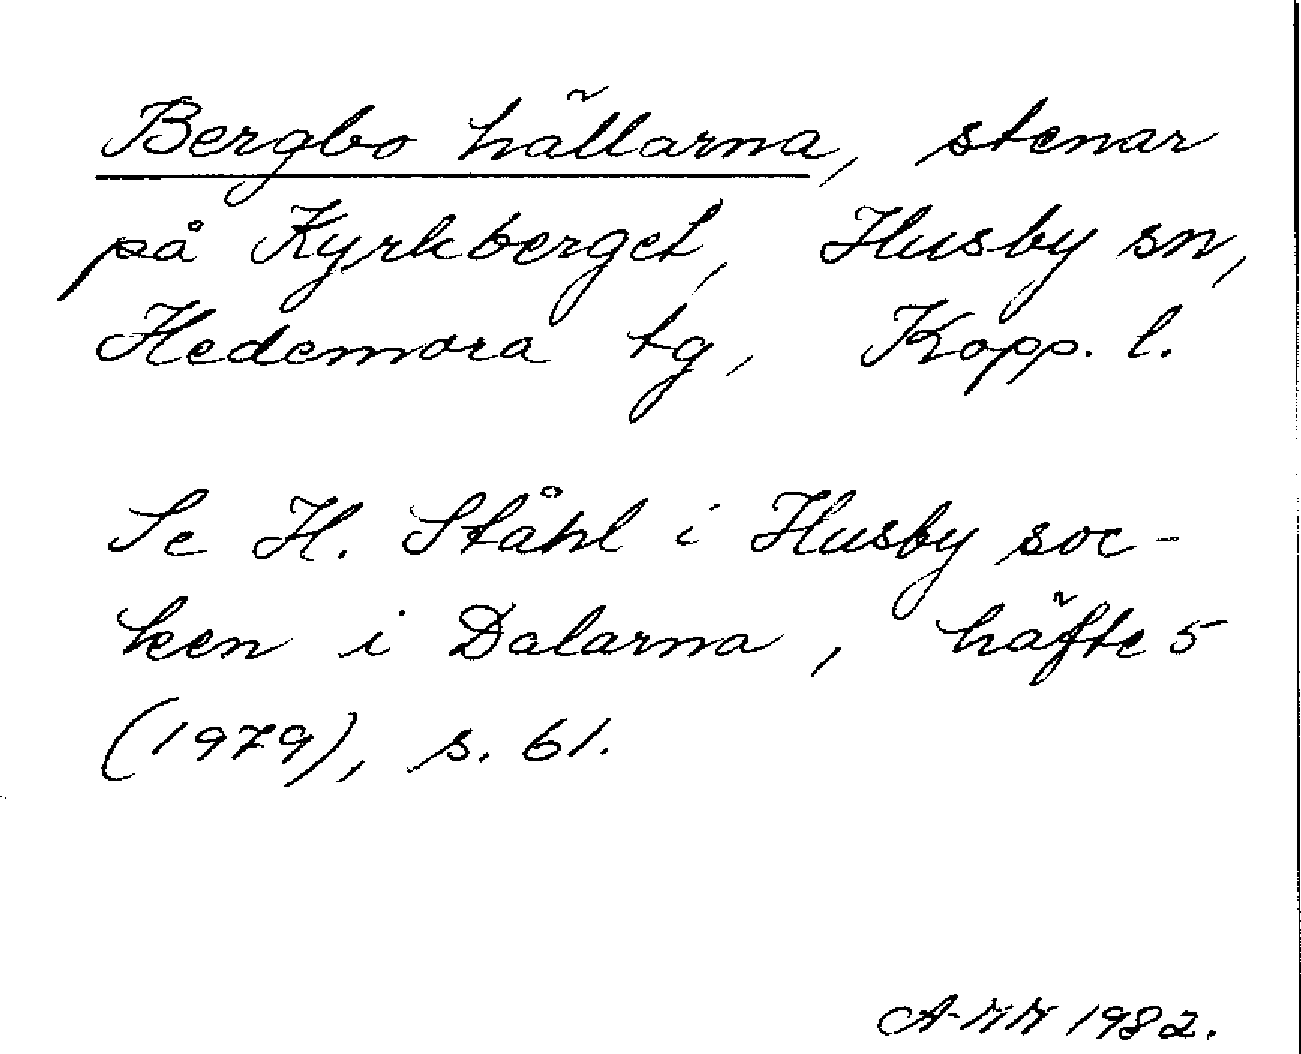 Bergbo hällarna, stenar
på Kyrkberget, Husby sn,
Hedemora tg, Kopp. l.
Se H. Ståhl i Husby soc-
ken i Dalarna, häfte 5
(1979), s. 61.
1982.